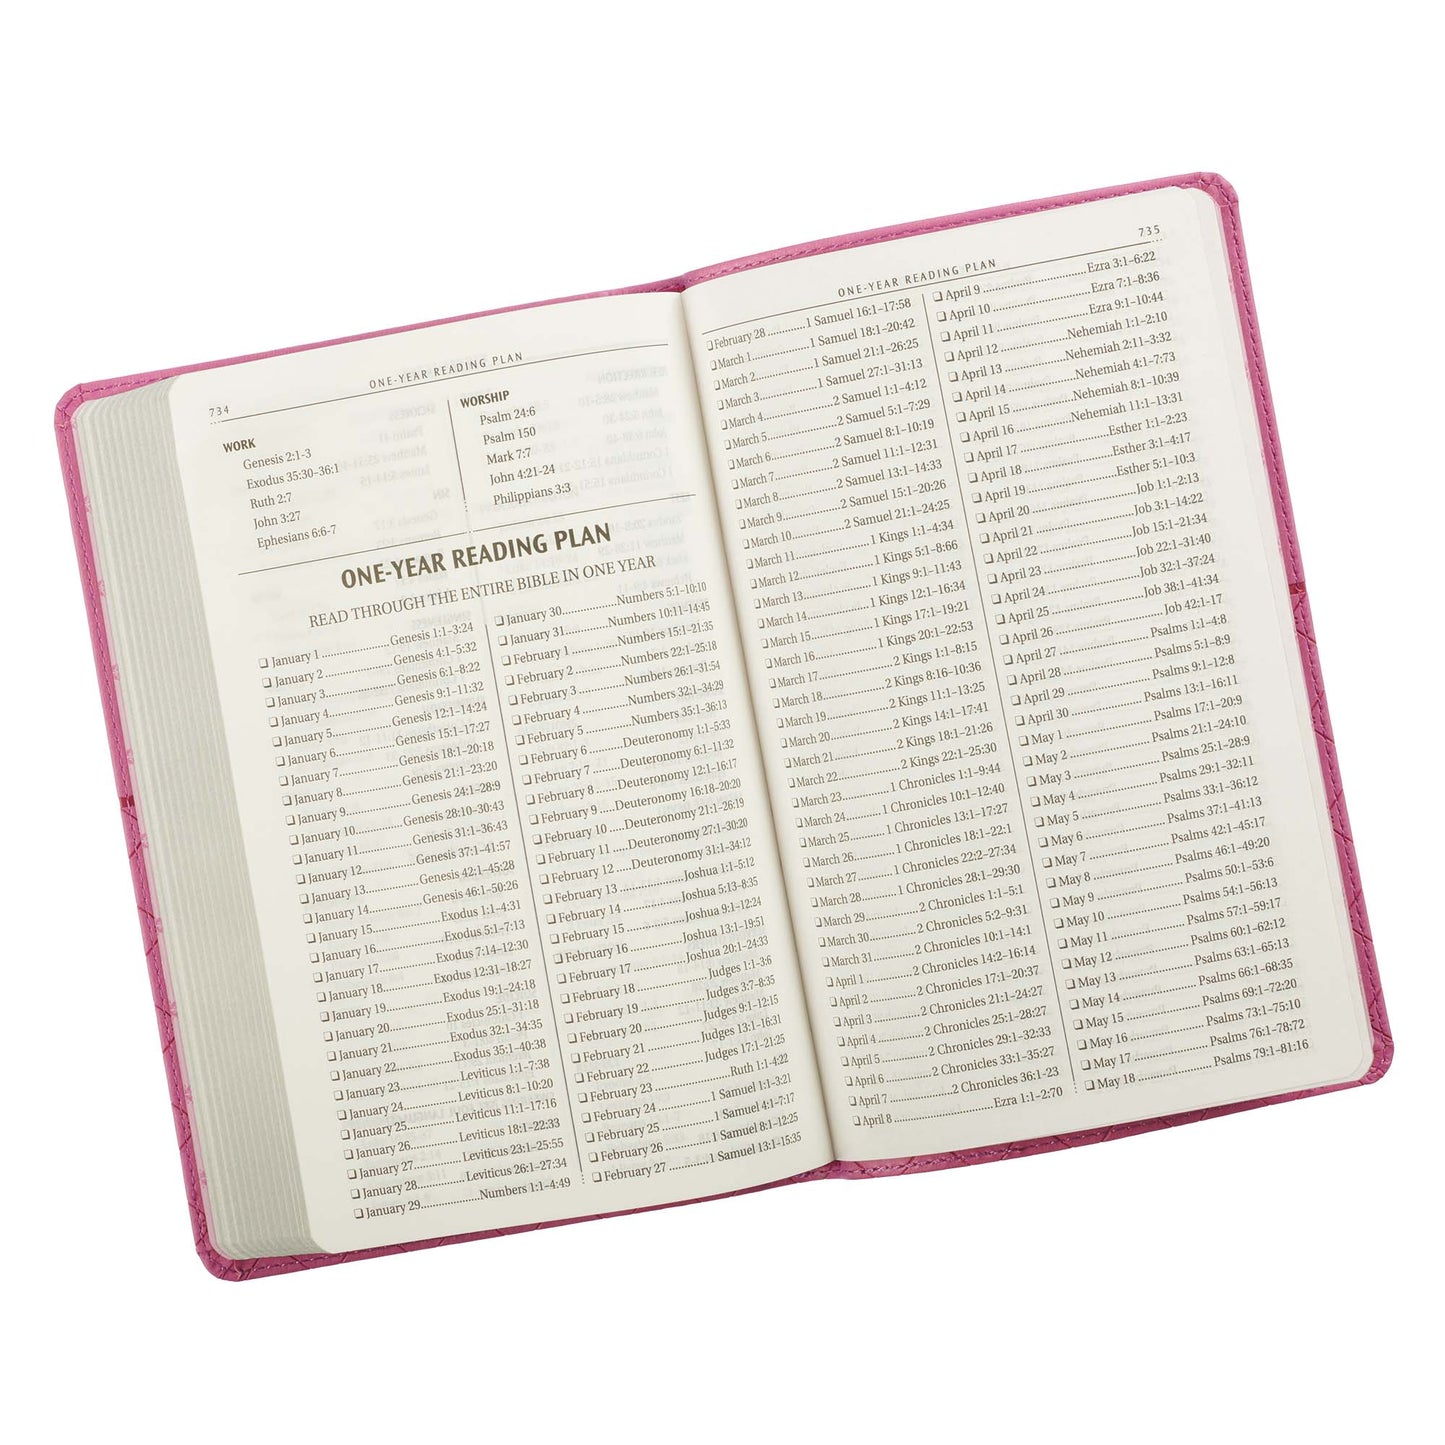 734
ONE-YEAR READING PLAN
WORK
Genesis 2:1-3
Exodus 35:30-36:1
Ruth 2:7
John 3:27
Ephesians 6:6-7
WORSHIP
Psalm 24:6
Psalm 150
Mark 7:7
John 4:21-24
Philippians 3:3
ONE-YEAR READING PLAN
READ THROUGH THE ENTIRE BIBLE IN ONE YEAR
❏ January 1 ........ Genesis 1:1–3:24
❏ January 2 ........ Genesis 4:1–5:32
❏ January 3 ........ Genesis 6:1–8:22
❏ January 4 ........ Genesis 9:1–11:32
❏ January 5 ........ Genesis 12:1–14:24
❏ January 6 ........ Genesis 15:1–17:27
❏ January 7 ........ Genesis 18:1–20:18
❏ January 8 ........ Genesis 21:1–23:20
❏ January 9 ........ Genesis 24:1–28:9
❏ January 10 ........ Genesis 28:10–30:43
❏ January 11 ........ Genesis 31:1–36:43
❏ January 12 ........ Genesis 37:1–41:57
❏ January 13 ........ Genesis 42:1–45:28
❏ January 14 ........ Genesis 46:1–50:26
❏ January 15 ........ Exodus 1:1–4:31
❏ January 16 ........ Exodus 5:1–7:13
❏ January 17 ........ Exodus 7:14–12:30
❏ January 18 ........ Exodus 12:31–18:27
❏ January 19 ........ Exodus 19:1–24:18
❏ January 20 ........ Exodus 25:1–31:18
❏ January 21 ........ Exodus 32:1–34:35
❏ January 22 ........ Exodus 35:1–40:38
❏ January 23 ........ Leviticus 1:1–7:38
❏ January 24 ........ Leviticus 8:1–10:20
❏ January 25 ........ Leviticus 11:1–17:16
❏ January 26 ........ Leviticus 18:1–22:33
❏ January 27 ........ Leviticus 23:1–25:55
❏ January 28 ........ Leviticus 26:1–27:34
❏ January 29 ........ Numbers 1:1–4:49
❏ January 30 ........ Numbers 5:1–10:10
❏ January 31 ........ Numbers 10:11–14:45
❏ February 1 ........ Numbers 15:1–21:35
❏ February 2 ........ Numbers 22:1–25:18
❏ February 3 ........ Numbers 26:1–31:54
❏ February 4 ........ Numbers 32:1–34:29
❏ February 5 ........ Numbers 35:1–36:13
❏ February 6 ........ Deuteronomy 1:1–5:33
❏ February 7 ........ Deuteronomy 6:1–11:32
❏ February 8 ........ Deuteronomy 12:1–16:17
❏ February 9 ........ Deuteronomy 16:18–20:20
❏ February 10 ........ Deuteronomy 21:1–26:19
❏ February 11 ........ Deuteronomy 27:1–30:20
❏ February 12 ........ Deuteronomy 31:1–34:12
❏ February 13 ........ Joshua 1:1–5:12
❏ February 14 ........ Joshua 5:13–8:35
❏ February 15 ........ Joshua 9:1–12:24
❏ February 16 ........ Joshua 13:1–19:51
❏ February 17 ........ Joshua 20:1–24:33
❏ February 18 ........ Judges 1:1–3:6
❏ February 19 ........ Judges 3:7–8:35
❏ February 20 ........ Judges 9:1–12:15
❏ February 21 ........ Judges 13:1–16:31
❏ February 22 ........ Judges 17:1–21:25
❏ February 23 ........ Ruth 1:1–4:22
❏ February 24 ........ 1 Samuel 1:1–3:21
❏ February 25 ........ 1 Samuel 4:1–7:17
❏ February 26 ........ 1 Samuel 8:1–12:25
❏ February 27 ........ 1 Samuel 13:1–15:35
735
ONE-YEAR READING PLAN
❏ February 28 ........ 1 Samuel 16:1–17:58
❏ March 1 ........ 1 Samuel 18:1–20:42
❏ March 2 ........ 1 Samuel 21:1–26:25
❏ March 3 ........ 1 Samuel 27:1–31:13
❏ March 4 ........ 2 Samuel 1:1–4:12
❏ March 5 ........ 2 Samuel 5:1–7:29
❏ March 6 ........ 2 Samuel 8:1–10:19
❏ March 7 ........ 2 Samuel 11:1–12:31
❏ March 8 ........ 2 Samuel 13:1–14:33
❏ March 9 ........ 2 Samuel 15:1–20:26
❏ March 10 ........ 2 Samuel 21:1–24:25
❏ March 11 ........ 1 Kings 1:1–4:34
❏ March 12 ........ 1 Kings 5:1–8:66
❏ March 13 ........ 1 Kings 9:1–11:43
❏ March 14 ........ 1 Kings 12:1–16:34
❏ March 15 ........ 1 Kings 17:1–19:21
❏ March 16 ........ 1 Kings 20:1–22:53
❏ March 17 ........ 2 Kings 1:1–8:15
❏ March 18 ........ 2 Kings 8:16–10:36
❏ March 19 ........ 2 Kings 11:1–13:25
❏ March 20 ........ 2 Kings 14:1–17:41
❏ March 21 ........ 2 Kings 18:1–21:26
❏ March 22 ........ 2 Kings 22:1–25:30
❏ March 23 ........ 1 Chronicles 1:1–9:44
❏ March 24 ........ 1 Chronicles 10:1–12:40
❏ March 25 ........ 1 Chronicles 13:1–17:27
❏ March 26 ........ 1 Chronicles 18:1–22:1
❏ March 27 ........ 1 Chronicles 22:2–27:34
❏ March 28 ........ 1 Chronicles 28:1–29:30
❏ March 29 ........ 2 Chronicles 1:1–5:1
❏ March 30 ........ 2 Chronicles 5:2–9:31
❏ March 31 ........ 2 Chronicles 10:1–14:1
❏ April 1 ........ 2 Chronicles 14:2–16:14
❏ April 2 ........ 2 Chronicles 17:1–20:37
❏ April 3 ........ 2 Chronicles 21:1–24:27
❏ April 4 ........ 2 Chronicles 25:1–28:27
❏ April 5 ........ 2 Chronicles 29:1–32:33
❏ April 6 ........ 2 Chronicles 33:1–35:27
❏ April 7 ........ 2 Chronicles 36:1–23
❏ April 8 ........ Ezra 1:1–2:70
❏ April 9 ........ Ezra 3:1–6:22
❏ April 10 ........ Ezra 7:1–8:36
❏ April 11 ........ Ezra 9:1–10:44
❏ April 12 ........ Nehemiah 1:1–2:10
❏ April 13 ........ Nehemiah 2:11–3:32
❏ April 14 ........ Nehemiah 4:1–7:73
❏ April 15 ........ Nehemiah 8:1–10:39
❏ April 16 ........ Nehemiah 11:1–13:31
❏ April 17 ........ Esther 1:1–2:23
❏ April 18 ........ Esther 3:1–4:17
❏ April 19 ........ Esther 5:1–10:3
❏ April 20 ........ Job 1:1–2:13
❏ April 21 ........ Job 3:1–14:22
❏ April 22 ........ Job 15:1–21:34
❏ April 23 ........ Job 22:1–31:40
❏ April 24 ........ Job 32:1–37:24
❏ April 25 ........ Job 38:1–41:34
❏ April 26 ........ Job 42:1–17
❏ April 27 ........ Psalms 1:1–4:8
❏ April 28 ........ Psalms 5:1–8:9
❏ April 29 ........ Psalms 9:1–12:8
❏ April 30 ........ Psalms 13:1–16:11
❏ May 1 ........ Psalms 17:1–20:9
❏ May 2 ........ Psalms 21:1–24:10
❏ May 3 ........ Psalms 25:1–28:9
❏ May 4 ........ Psalms 29:1–32:11
❏ May 5 ........ Psalms 33:1–36:12
❏ May 6 ........ Psalms 37:1–41:13
❏ May 7 ........ Psalms 42:1–45:17
❏ May 8 ........ Psalms 46:1–49:20
❏ May 9 ........ Psalms 50:1–53:6
❏ May 10 ........ Psalms 54:1–56:13
❏ May 11 ........ Psalms 57:1–59:17
❏ May 12 ........ Psalms 60:1–62:12
❏ May 13 ........ Psalms 63:1–65:13
❏ May 14 ........ Psalms 66:1–68:35
❏ May 15 ........ Psalms 69:1–72:20
❏ May 16 ........ Psalms 73:1–75:10
❏ May 17 ........ Psalms 76:1–78:72
❏ May 18 ........ Psalms 79:1–81:16